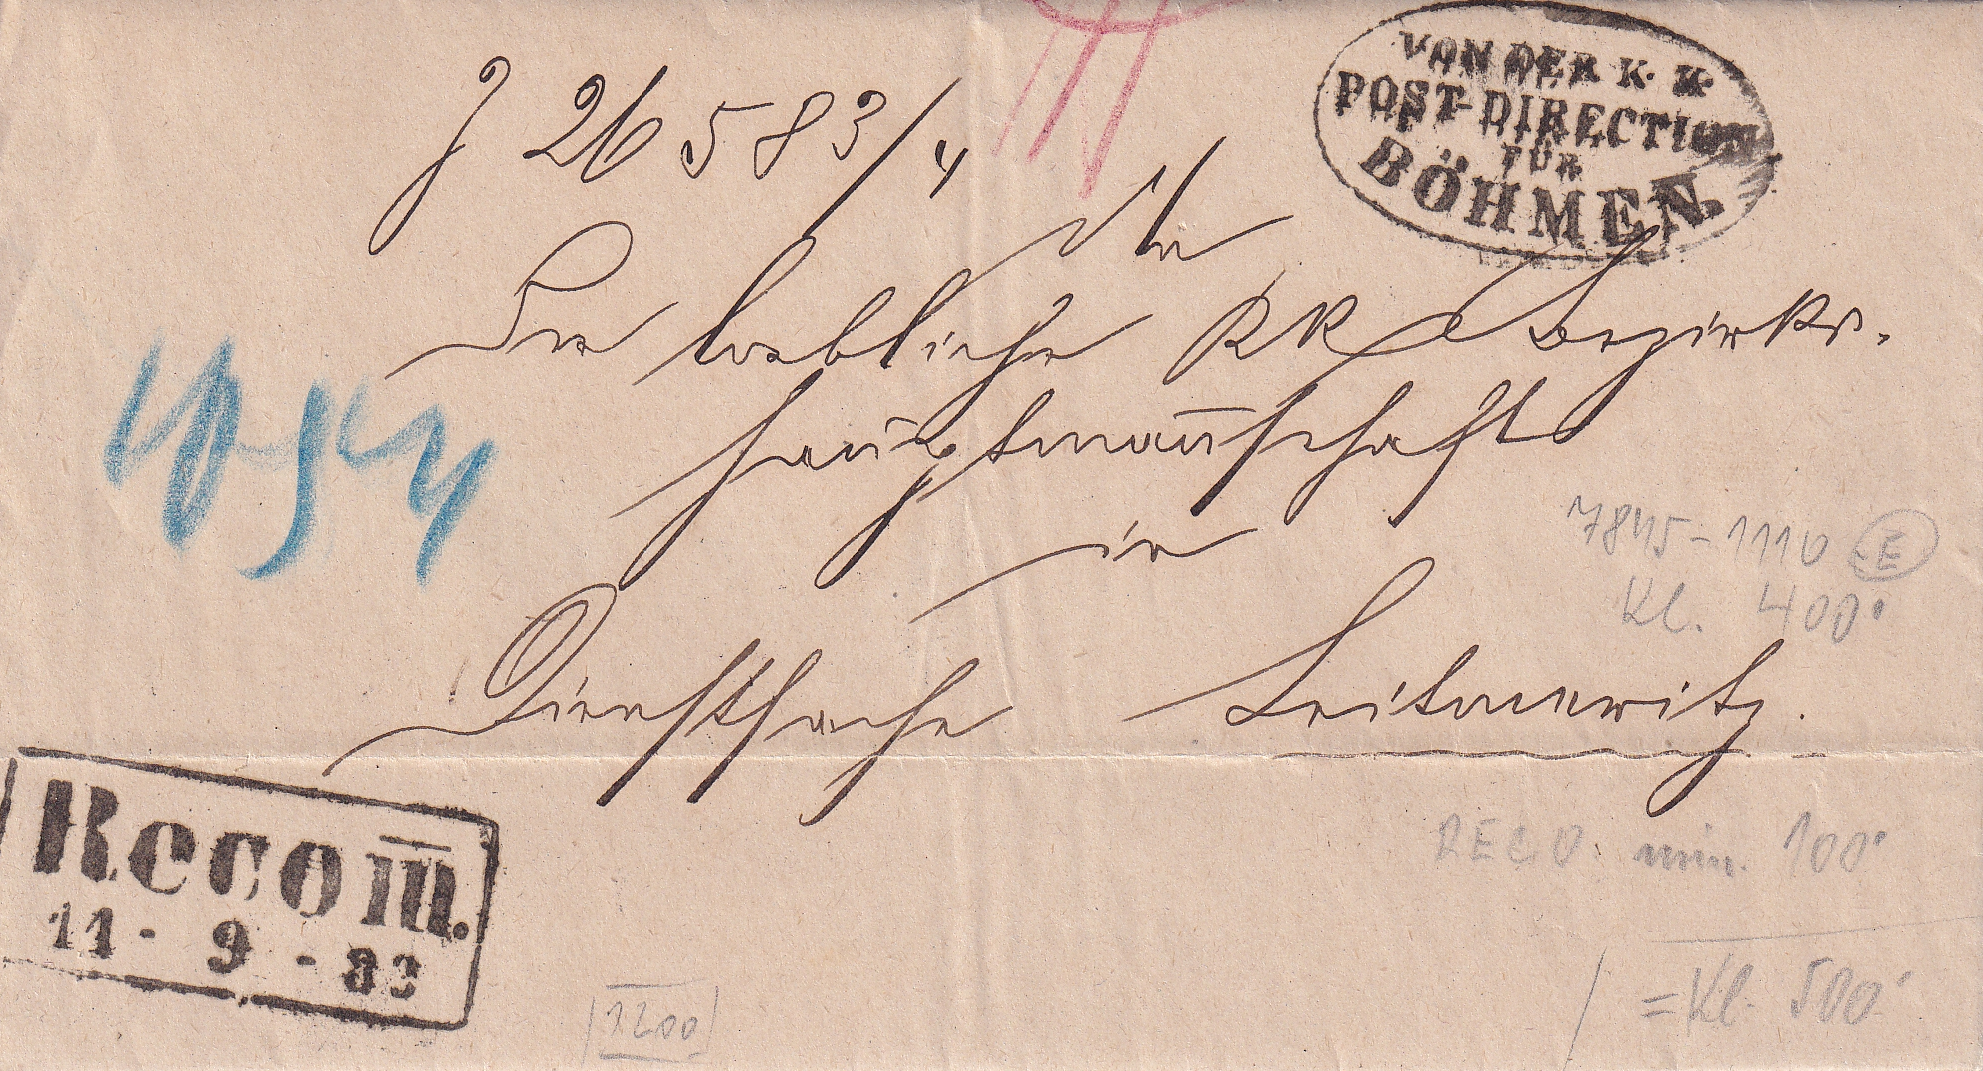 VON DER K. K.
POST-DIRECTION
FÜR
BÖHMEN.
J 26583/4
An
Die löbliche KK Bezirks-
hauptmañschaft
in
Dienstsache Leitmeritz.
Recom̅.
11 - 9 - 83
7845-1110 E
Kl. 400.
RECO min. 100.
= Kl. 500.
1200